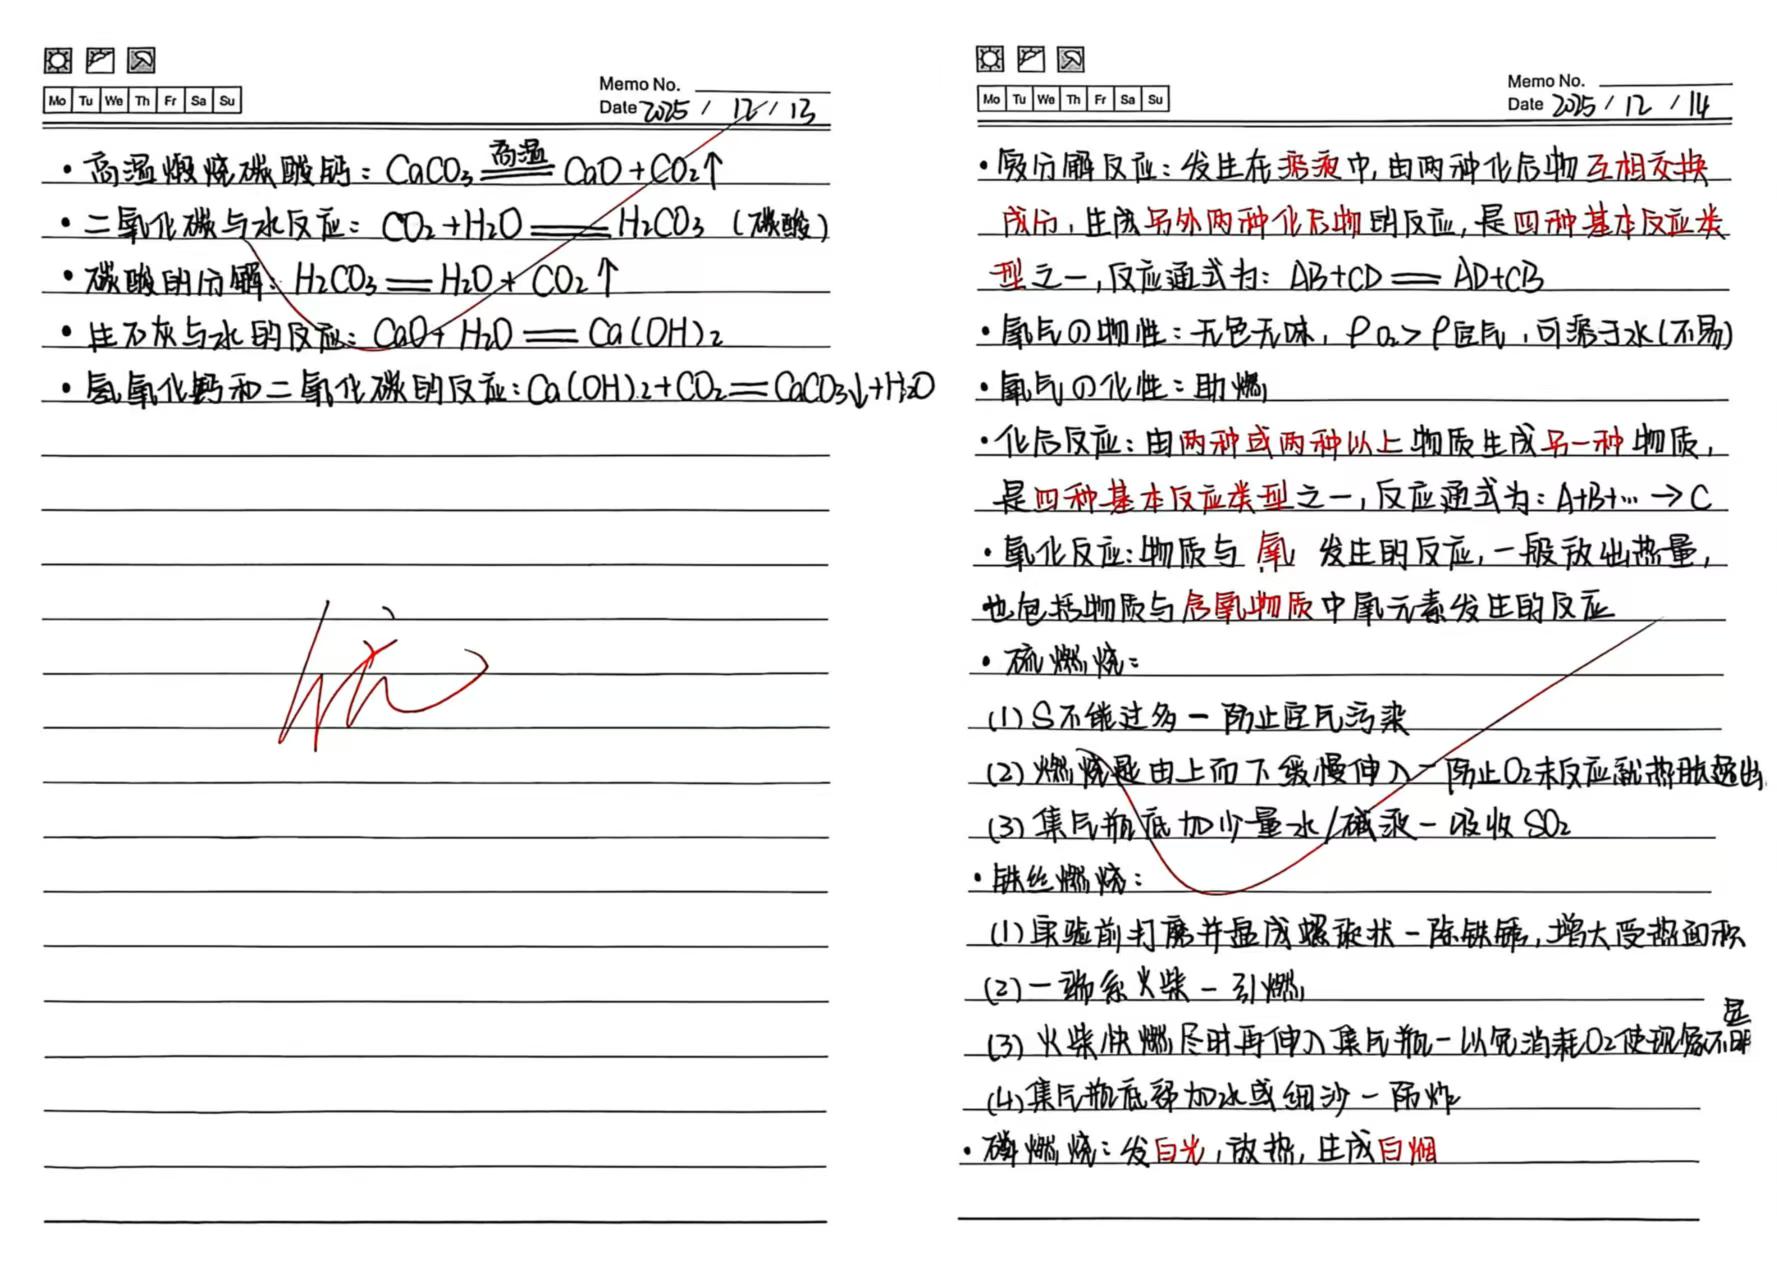 Mo Tu We Th Fr Sa Su
Memo No.
Date 2025 / 12 / 13
·高温煅烧碳酸钙：CaCO₃ =高温= CaO+CO₂↑
·二氧化碳与水反应：CO₂+H₂O══H₂CO₃（碳酸）
·碳酸的分解：H₂CO₃══H₂O+CO₂↑
·生石灰与水的反应：CaO+H₂O══Ca(OH)₂
·氢氧化钙和二氧化碳的反应：Ca(OH)₂+CO₂══CaCO₃↓+H₂O
Mo Tu We Th Fr Sa Su
Memo No.
Date 2025 / 12 / 14
·复分解反应：发生在溶液中，由两种化合物互相交换
成分，生成另外两种化合物的反应，是四种基本反应类
型之一，反应通式为：AB+CD══AD+CB
·氧气の物性：无色无味，ρO₂>ρ空气，可溶于水(不易)
·氧气の化性：助燃
·化合反应：由两种或两种以上物质生成另一种物质，
是四种基本反应类型之一，反应通式为：A+B+…→C
·氧化反应：物质与氧发生的反应，一般放出热量，
也包括物质与含氧物质中氧元素发生的反应
·硫燃烧：
(1)S不能过多－防止空气污染
(2)燃烧匙由上而下缓慢伸入－防止O₂未反应就热胀逸出
(3)集气瓶底加少量水/碱液－吸收SO₂
·铁丝燃烧：
(1)实验前打磨并盘成螺旋状－除铁锈，增大受热面积
(2)一端系火柴－引燃
(3)火柴快燃尽时再伸入集气瓶－以免消耗O₂使现象不明显
(4)集气瓶底部加水或细沙－防炸
·磷燃烧：发白光，放热，生成白烟